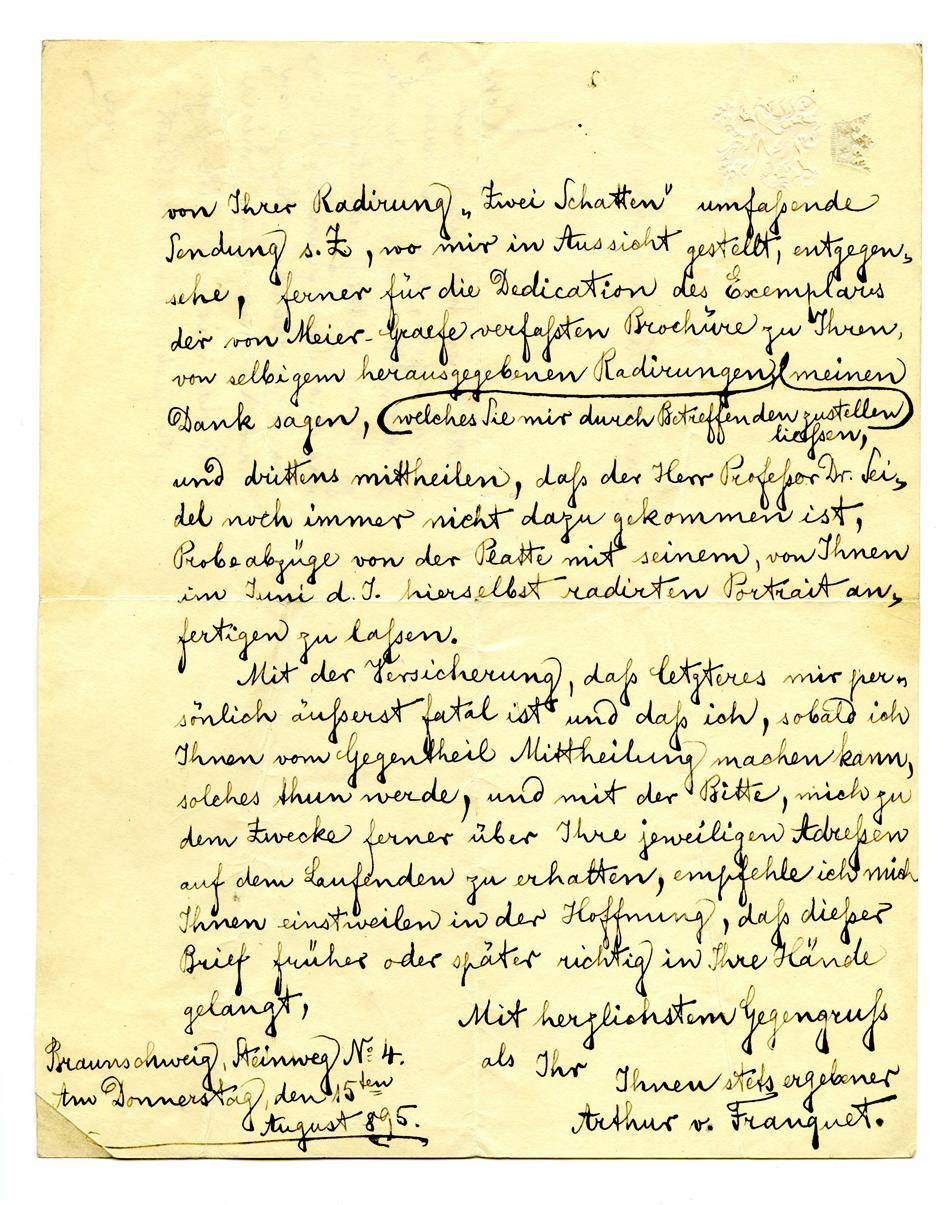 von Ihrer Radirung „Zwei Schatten" umfaßende
Sendung s. Z, wo mir in Aussicht gestellt, entgegen-
sehe, ferner für die Dedication des Exemplars
der von Meier-Graefe verfaßten Brochüre zu Ihren,
von selbigem herausgegebenen Radirungen, (meinen
Dank sagen, (welches Sie mir durch Betreffenden zustellen
ließen,)
und drittens mittheilen, daß der Herr Profeßor Dr. Sei-
del noch immer nicht dazu gekommen ist,
Probeabzüge von der Platte mit seinem, von Ihnen
im Juni d. J. hierselbst radirten Portrait an-
fertigen zu laßen.
Mit der Versicherung, daß letzteres mir per-
sönlich äußerst fatal ist und daß ich, sobald ich
Ihnen vom Gegentheil Mittheilung machen kann,
solches thun werde, und mit der Bitte, mich zu
dem Zwecke ferner über Ihre jeweiligen Adreßen
auf dem Laufenden zu erhalten, empfehle ich mich
Ihnen einstweilen in der Hoffnung, daß dießer
Brief früher oder später richtig in Ihre Hände
gelangt,
Mit herzlichstem Gegengruß
als Ihr
Ihnen stets ergebener
Arthur v. Franquet.
Braunschweig, Steinweg No. 4.
Am Donnerstag, den 15ten
August 895.